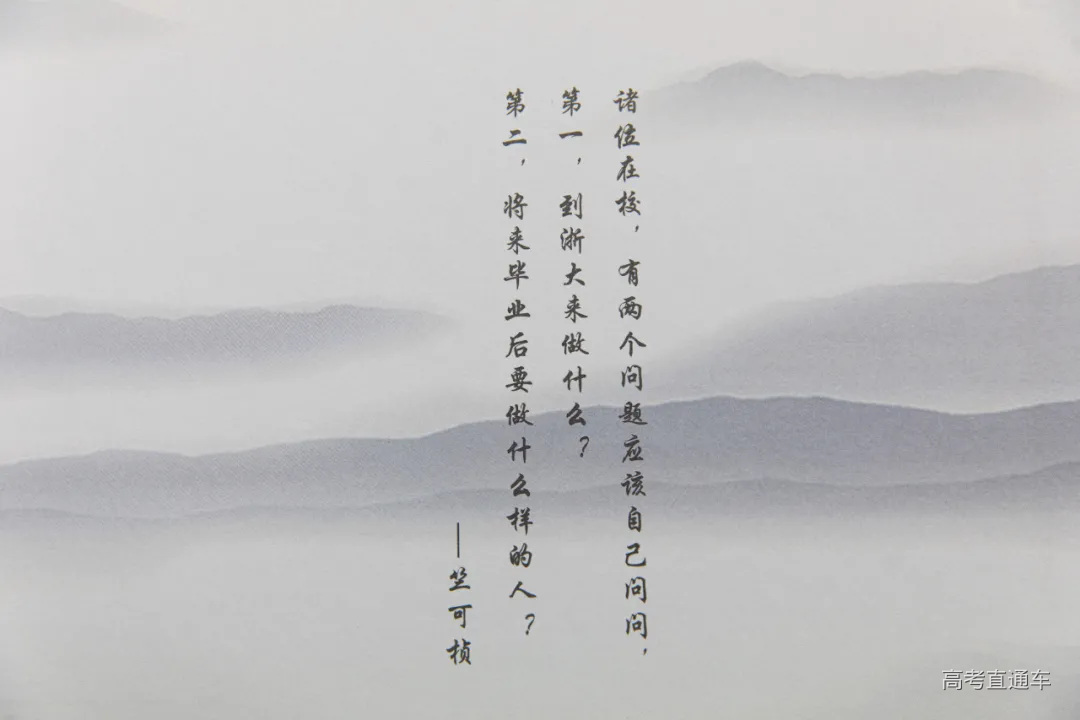 诸位在校，有两个问题应该自己问问，
第一，到浙大来做什么？
第二，将来毕业后要做什么样的人？
——竺可桢
高考直通车